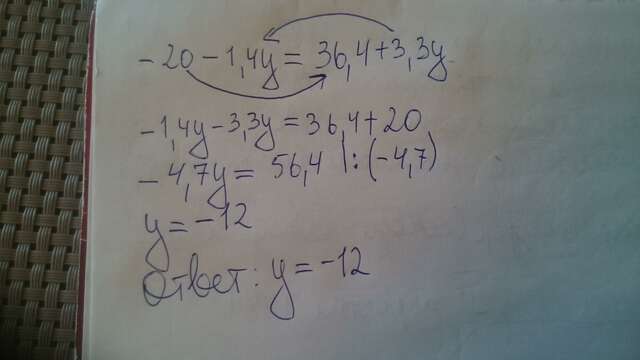 -20-1,4y=36,4+3,3y
-1,4y-3,3y=36,4+20
-4,7y=56,4 |:(-4,7)
y=-12
Ответ: y=-12